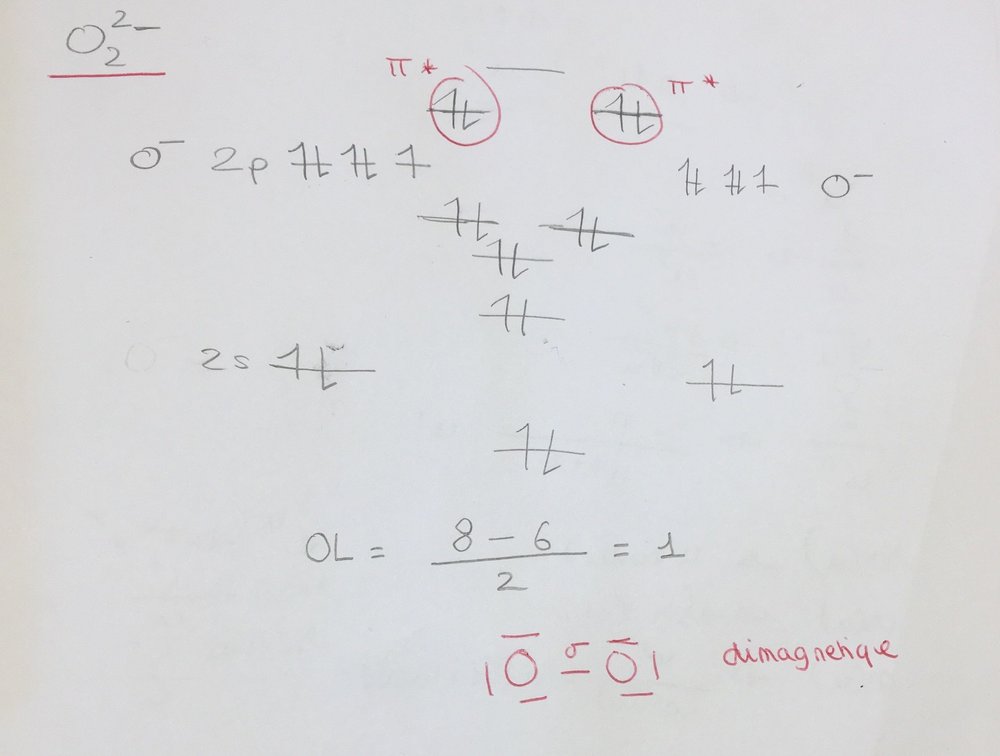 O₂²⁻
π* π*
O⁻ 2p ⥮ ⥮ ↿ ⥮ ⥮ ↿ O⁻
2s
OL = (8 − 6)/2 = 1
|O̲̅ σ O̲̅| dimagnetique